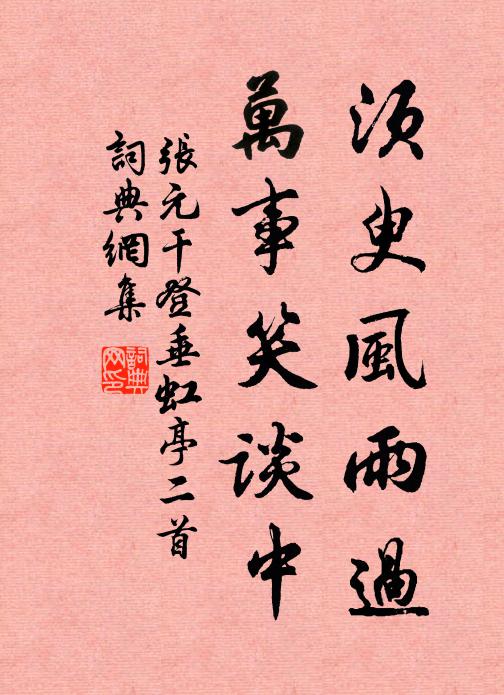 須臾風雨過
萬事笑談中
張元干登垂虹亭二首
詞典網集
詞典網印